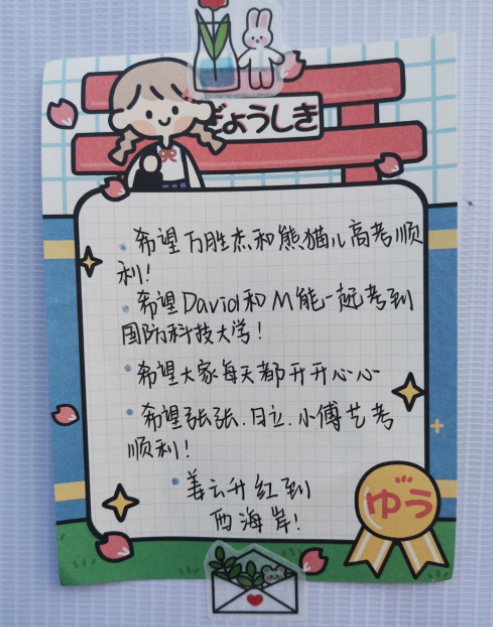 ぎょうしき
希望万胜杰和熊猫儿高考顺
利！
希望David和M能一起考到
国防科技大学！
希望大家每天都开开心心
希望张张.日立.小傅艺考
顺利！
姜云升红到
西海岸！
ゆう